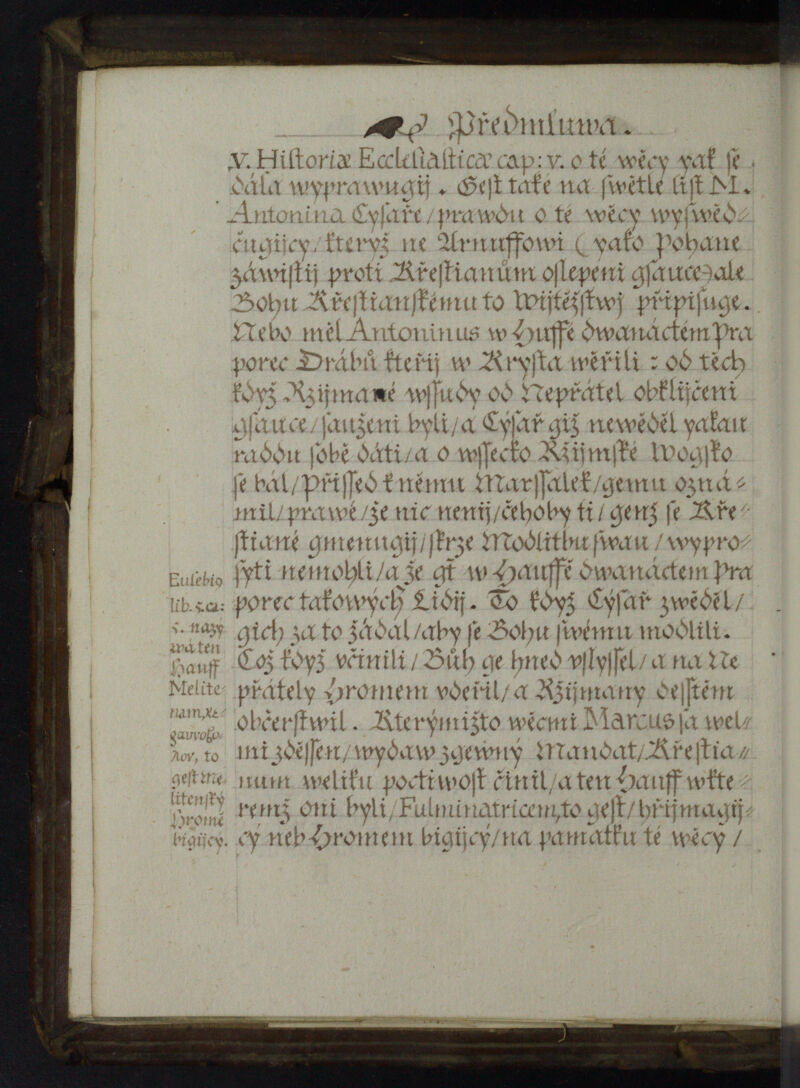 Předmluwa.
.v. Hiſtoriæ Eccleſiaſticæ cap: v. o té wěcy yak ſe
dála wyprawugij. Geſt také na ſwětle liſt M.
Antonina Cyſaře / prawdu o té wěcy wyſwěd⸗
čugijcy / kterýž ne Arnuffowi (yako Pohane
záwiſtij proti Křeſtianům oſlepeni gſauce) ale
Bohu Křeſtianſkému to Wijtězſtwj připiſuge.
Nebo měl Antoninus w Huffě dwanáctem Pra
porec Drábů kteřij w Kryſta wěřili : od těch
když Rzijmané wſſudy od Nepřátel obklijčeni
gſauce / ſauženi byli / a Cýſař giž newěděl yakau
raddu ſobě dáti / a o wſſecko Rzijmſké Wogſko
ſe bál / přiſſed k němu Marſſalek / gemu ozná⸗
mil / prawě / že nic nenij / čehoby ti / genž ſe Kře⸗
ſtiané gmenugij / ſkrze Modlitbu ſwau / wypro⸗
ſyti nemohli / a že gt w Hauffě dwanáctem Pra
porec takowých Lidij. To když Cýſař zwěděl /
gich za to žádal / aby ſe Bohu ſwému modlili.
Což když včinili / Bůh ge hned vſlyſſel / a na Ne
přátely Hromem vdeřil / a Rzijmany deſſtěm
občerſtwil. Kterýmižto wěcmi Marcus ſa wel⸗
mi zděſſen / wydaw zgewný Mandát / Křeſtia⸗
num welikú poctiwoſt činil / a ten Hauff w kte⸗
remž oni byli / Fulminatricem, to geſt / hřijmagij⸗
cý neb Hromem bigijcý / na památku té wěcy /
Euſebio
lib. 5. ca:
5. nazy
wá ten
Hauff
Melite⸗
nam, κε
ραυνοβο
λον, to
geſt me⸗
litenſký
Hromě
bigijcý.